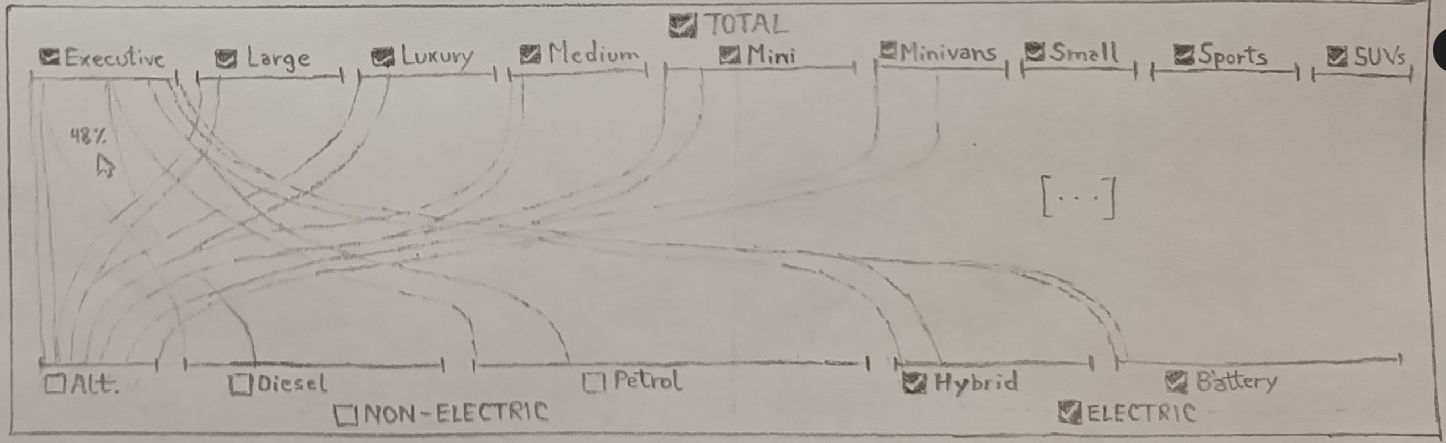 TOTAL
Executive Large Luxury Medium Mini Minivans Small Sports SUVs
48%
[...]
Alt. Diesel Petrol Hybrid Battery
NON-ELECTRIC ELECTRIC